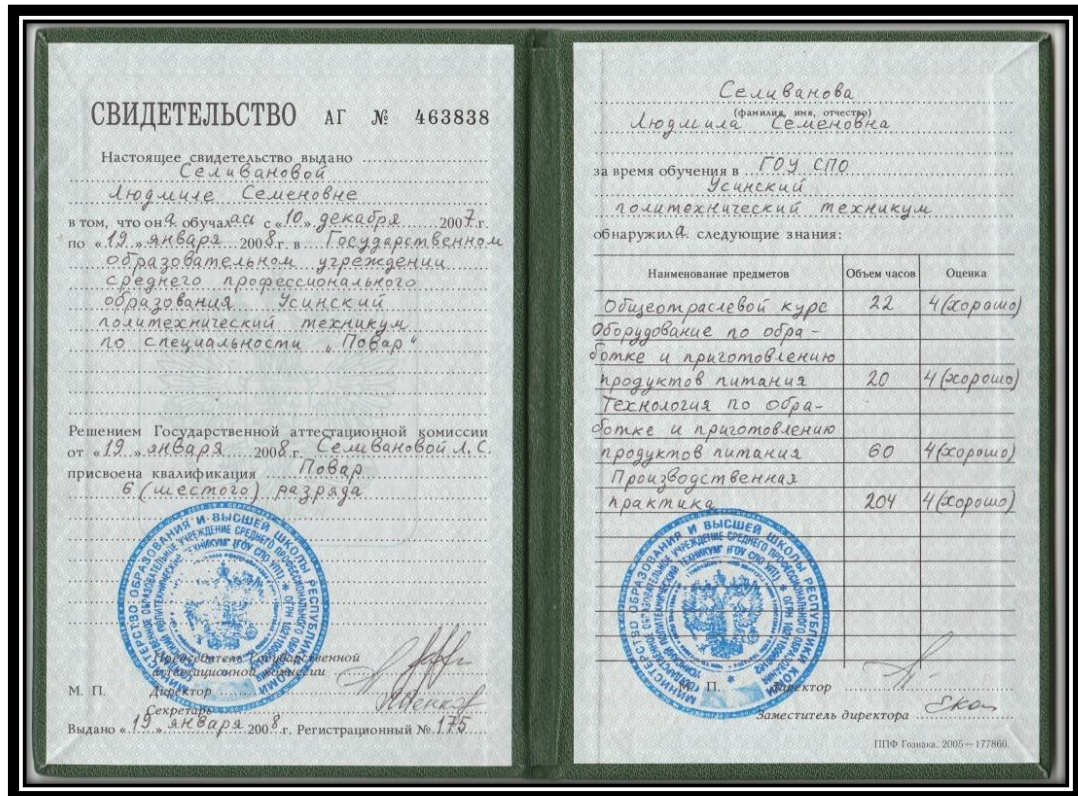 СВИДЕТЕЛЬСТВО АГ № 463838
Настоящее свидетельство выдано
Селивановой
Людмиле Семеновне
в том, что она обучалась с «10» декабря 2007 г.
по «19» января 2008 г. в Государственном
образовательном учреждении
среднего профессионального
образования Усинский
политехнический техникум
по специальности „Повар"
Решением Государственной аттестационной комиссии
от «19» января 2008 г. Селивановой Л.С.
присвоена квалификация Повар
6 (шестого) разряда
Председатель Государственной
аттестационной комиссии
М. П. Директор
Секретарь
Выдано «19» января 2008 г. Регистрационный № 175
Селиванова
(фамилия, имя, отчество)
Людмила Семеновна
за время обучения в ГОУ СПО
Усинский
политехнический техникум
обнаружила следующие знания:
Наименование предметов Объем часов Оценка
Общеотраслевой курс 22 4 (хорошо)
Оборудование по обра-
ботке и приготовлению
продуктов питания 20 4 (хорошо)
Технология по обра-
ботке и приготовлению
продуктов питания 60 4 (хорошо)
Производственная
практика 204 4 (хорошо)
М. П. Директор
Заместитель директора
ППФ Гознака. 2005—177860.